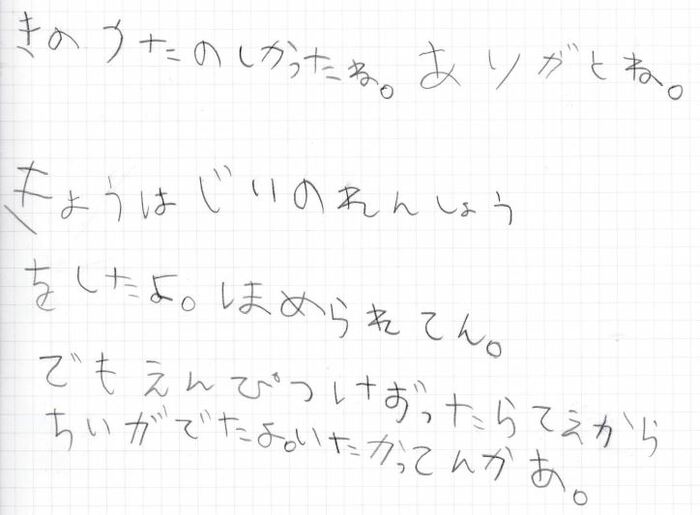 きのうたのしかったね。ありがとね。
きょうはじいのれんしょう
をしたよ。ほめられてん。
でもえんぴつけずったらてえから
ちいがでたよ。いたかってんかあ。